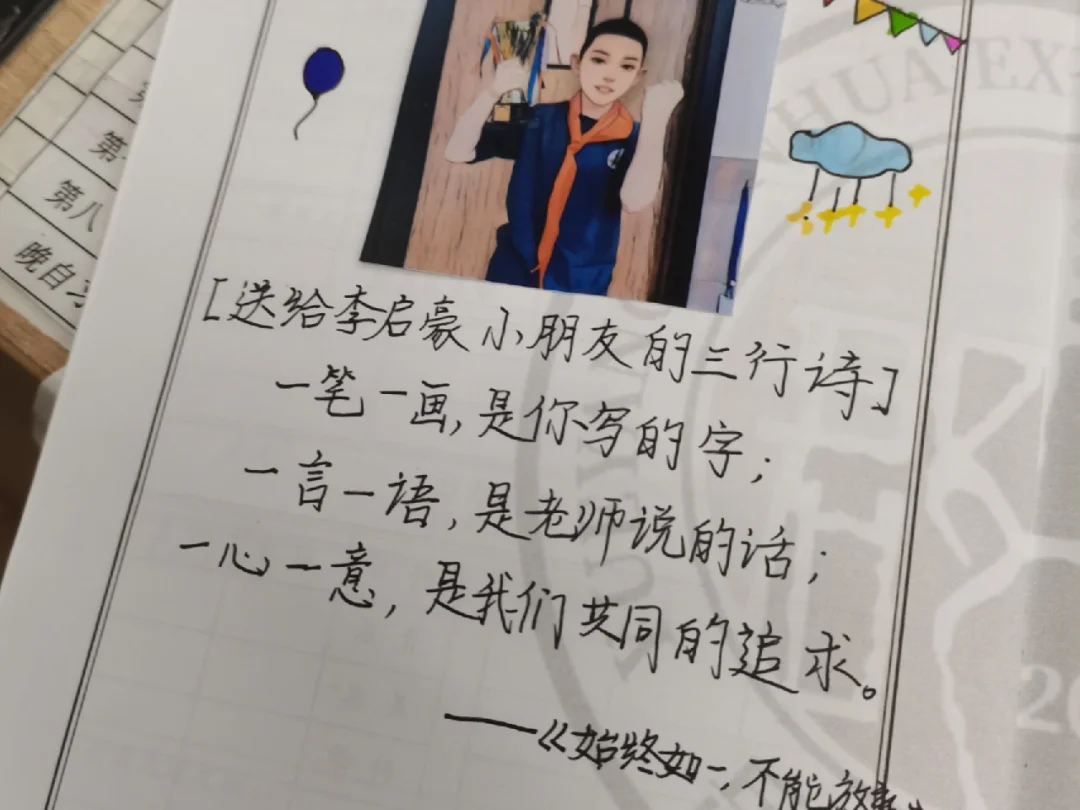 HUA EX
第
第八
晚自习
[送给李启豪小朋友的三行诗]
一笔一画,是你写的字;
一言一语,是老师说的话;
一心一意,是我们共同的追求。
——《始终如一,不能放弃》
20